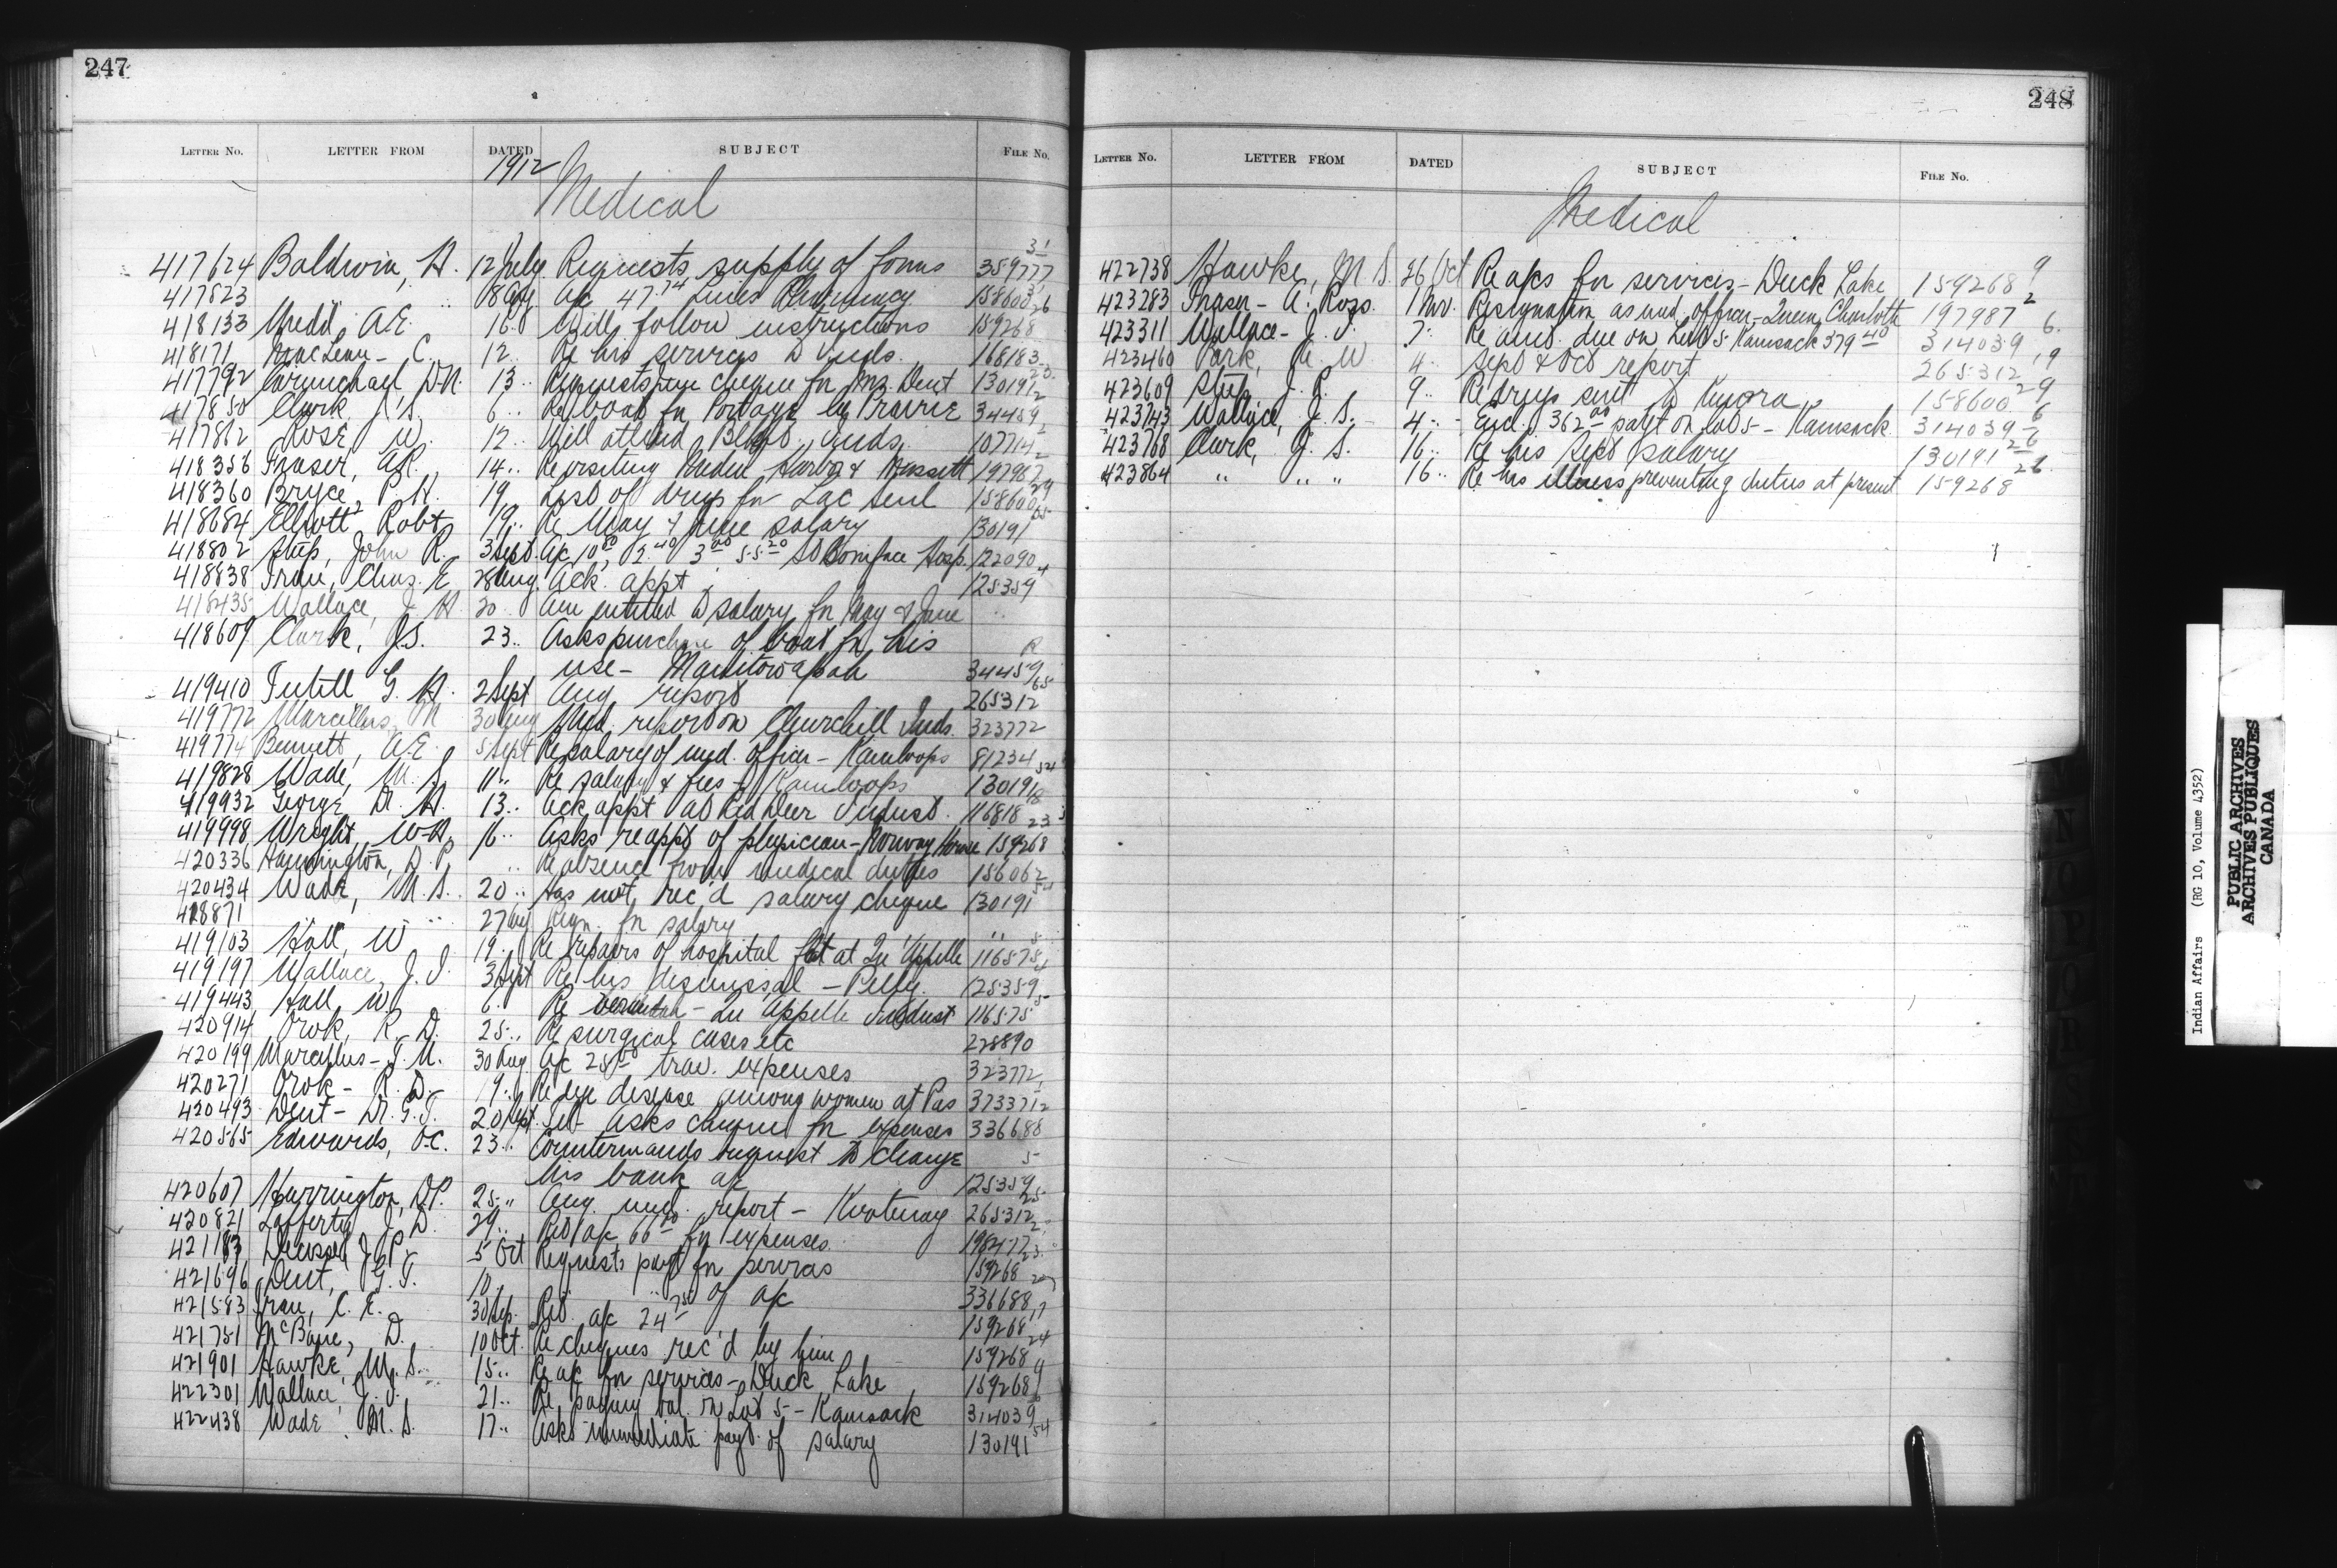 247
LETTER No. LETTER FROM DATED SUBJECT FILE No.
1912
Medical
417624 Baldwin, H. 12 July Requests supply of forms 359777 31
417823 " 8 Aug A/c 47.74 Pharmacy 158600 26
418133 Mudd, A.E. 16 Will follow instructions 159268
418171 MacLean - C. 12 .. Re his services to Inds. 168183
417792 Carmichael, D.N. 13 .. Requests June cheque for Mrs. Dent 130191
417850 Clark, J.S. 6 .. Re boat for Portage la Prairie 34459
417862 Rose W. 12 .. Will attend Inds. 107714
418356 Fraser, A.R. 14 .. Re visiting Harbor & Massett 197987
418360 Bryce, P.H. 19 List of drugs for Lac Seul 158600
418684 Elliott, Robt 19 .. Re May & June salary 130191
418802 Steep, John R. 3 Sept. A/c 10 2.40 3.00 55.20 St Boniface Hosp. 122090
418838 Chas. E 28 Aug. Ack. appt 125359
418435 Wallace, J. 20 Am entitled to salary for May & June ..
418609 Clark, J.S. 23 .. Asks purchase of boat for his
use - Manitowapah 34459
419410 Tutill G. H. 2 Sept Aug report 265312
419772 Marcellus, M 30 Aug Med. report on Churchill Inds. 323772
419774 Bennett, A.E. 5 Sept Re salary of med. officer - Kamloops 81234
419828 Wade, M. S. 11 .. Re salary & fees - Kamloops 130191
419932 George, Dr. H. 13 .. Ack appt at Red Deer Indust. 116818
419998 Wright, W.H. 16 .. Asks re appt of physician - Norway House 159268
420336 Harrington, D.P. .. Re absence from medical duties 156062
420434 Wade, M.S. 20 .. Has not rec'd salary cheque 130191
418871 .. .. 27 Aug Reqn. for salary ..
419103 Hall, W 19 .. Re repairs of hospital at Qu'Appelle 116575
419197 Wallace, J.I. 3 Sept Re his dismissal - Pelly. 125359
419443 Hall, W. 6 .. Re verandah - Qu'Appelle Indust 116575
420914 Orok, R. D. 25 .. Re surgical cases etc 228890
420199 Marcellus - T.M. 30 Aug A/c 25 trav. expenses 323772
420271 Orok - R. D. - 9 .. Re eye disease among women at Pas 373371
420493 Dent - Dr. G.T. 20 Sept Tel - asks cheque for expenses 336688
420565 Edwards, O.C. 23 .. Countermands request to change
his bank a/c 125359
420607 Harrington, D.P. 25 .. Aug. med. report - Kootenay 265312
420821 Lafferty J. D. 29 .. Ret. a/c 66 for expenses. 198477
421183 J.P. 5 Oct Requests payt for services 159268
421696 Dent, G.T. 10 .. " " of a/c 336688
421583 C. E. 30 Sep. Ret. a/c 24 159268
421751 McBane, D. 10 Oct. Re cheques rec'd by him 159268
421901 Hawke, M. S. 15 .. Re a/c for services - Duck Lake 159268
422301 Wallace, J. I. 21 .. Re paying bal. on Lot 5 - Kamsack 314039
422438 Wade M. S. 17 .. Asks immediate payt. of salary 130191 54
248
LETTER No. LETTER FROM DATED SUBJECT FILE No.
Medical
422738 Hawke, M S. 26 Oct Re a/cs for services - Duck Lake 159268 9
423283 Fraser - A. Ross. 1 Nov. Resignation as med. officer - Queen Charlotte 197987 2
423311 Wallace - J. I. 7 .. Re amt. due on Lot 5 Kamsack 379 40 314039 6
423460 Park, W 4 .. Sept & Oct report 265312 19
423609 Steep J. R. 9 .. Re drugs sent to Kenora 158600 29
423743 Wallace, J. S. - 4 .. Encl. 362 00 payt on Lot 5 - Kamsack 314039 6
423768 Clark, J. S. 16 .. Re his Sept salary 130191 26
423864 .. .. .. 16 .. Re his illness preventing duties at present 159268 26
Indian Affairs (RG 10, Volume 4352)
PUBLIC ARCHIVES
ARCHIVES PUBLIQUES
CANADA